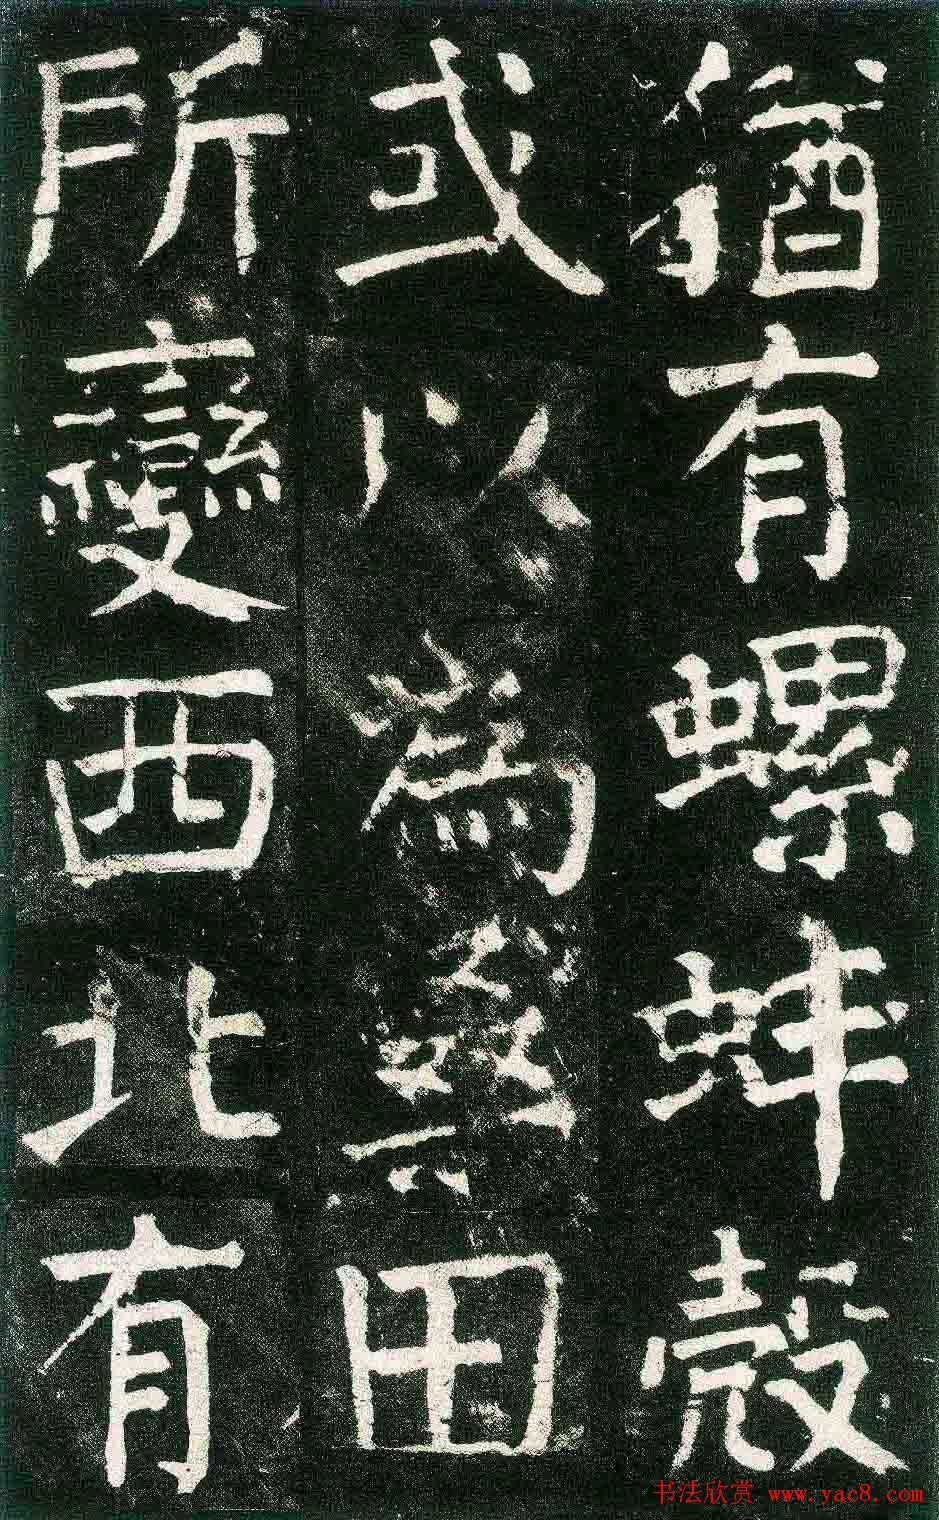 猶有螺蚌殼
或以爲桑田
所變西北有
书法欣赏 www.yac8.com